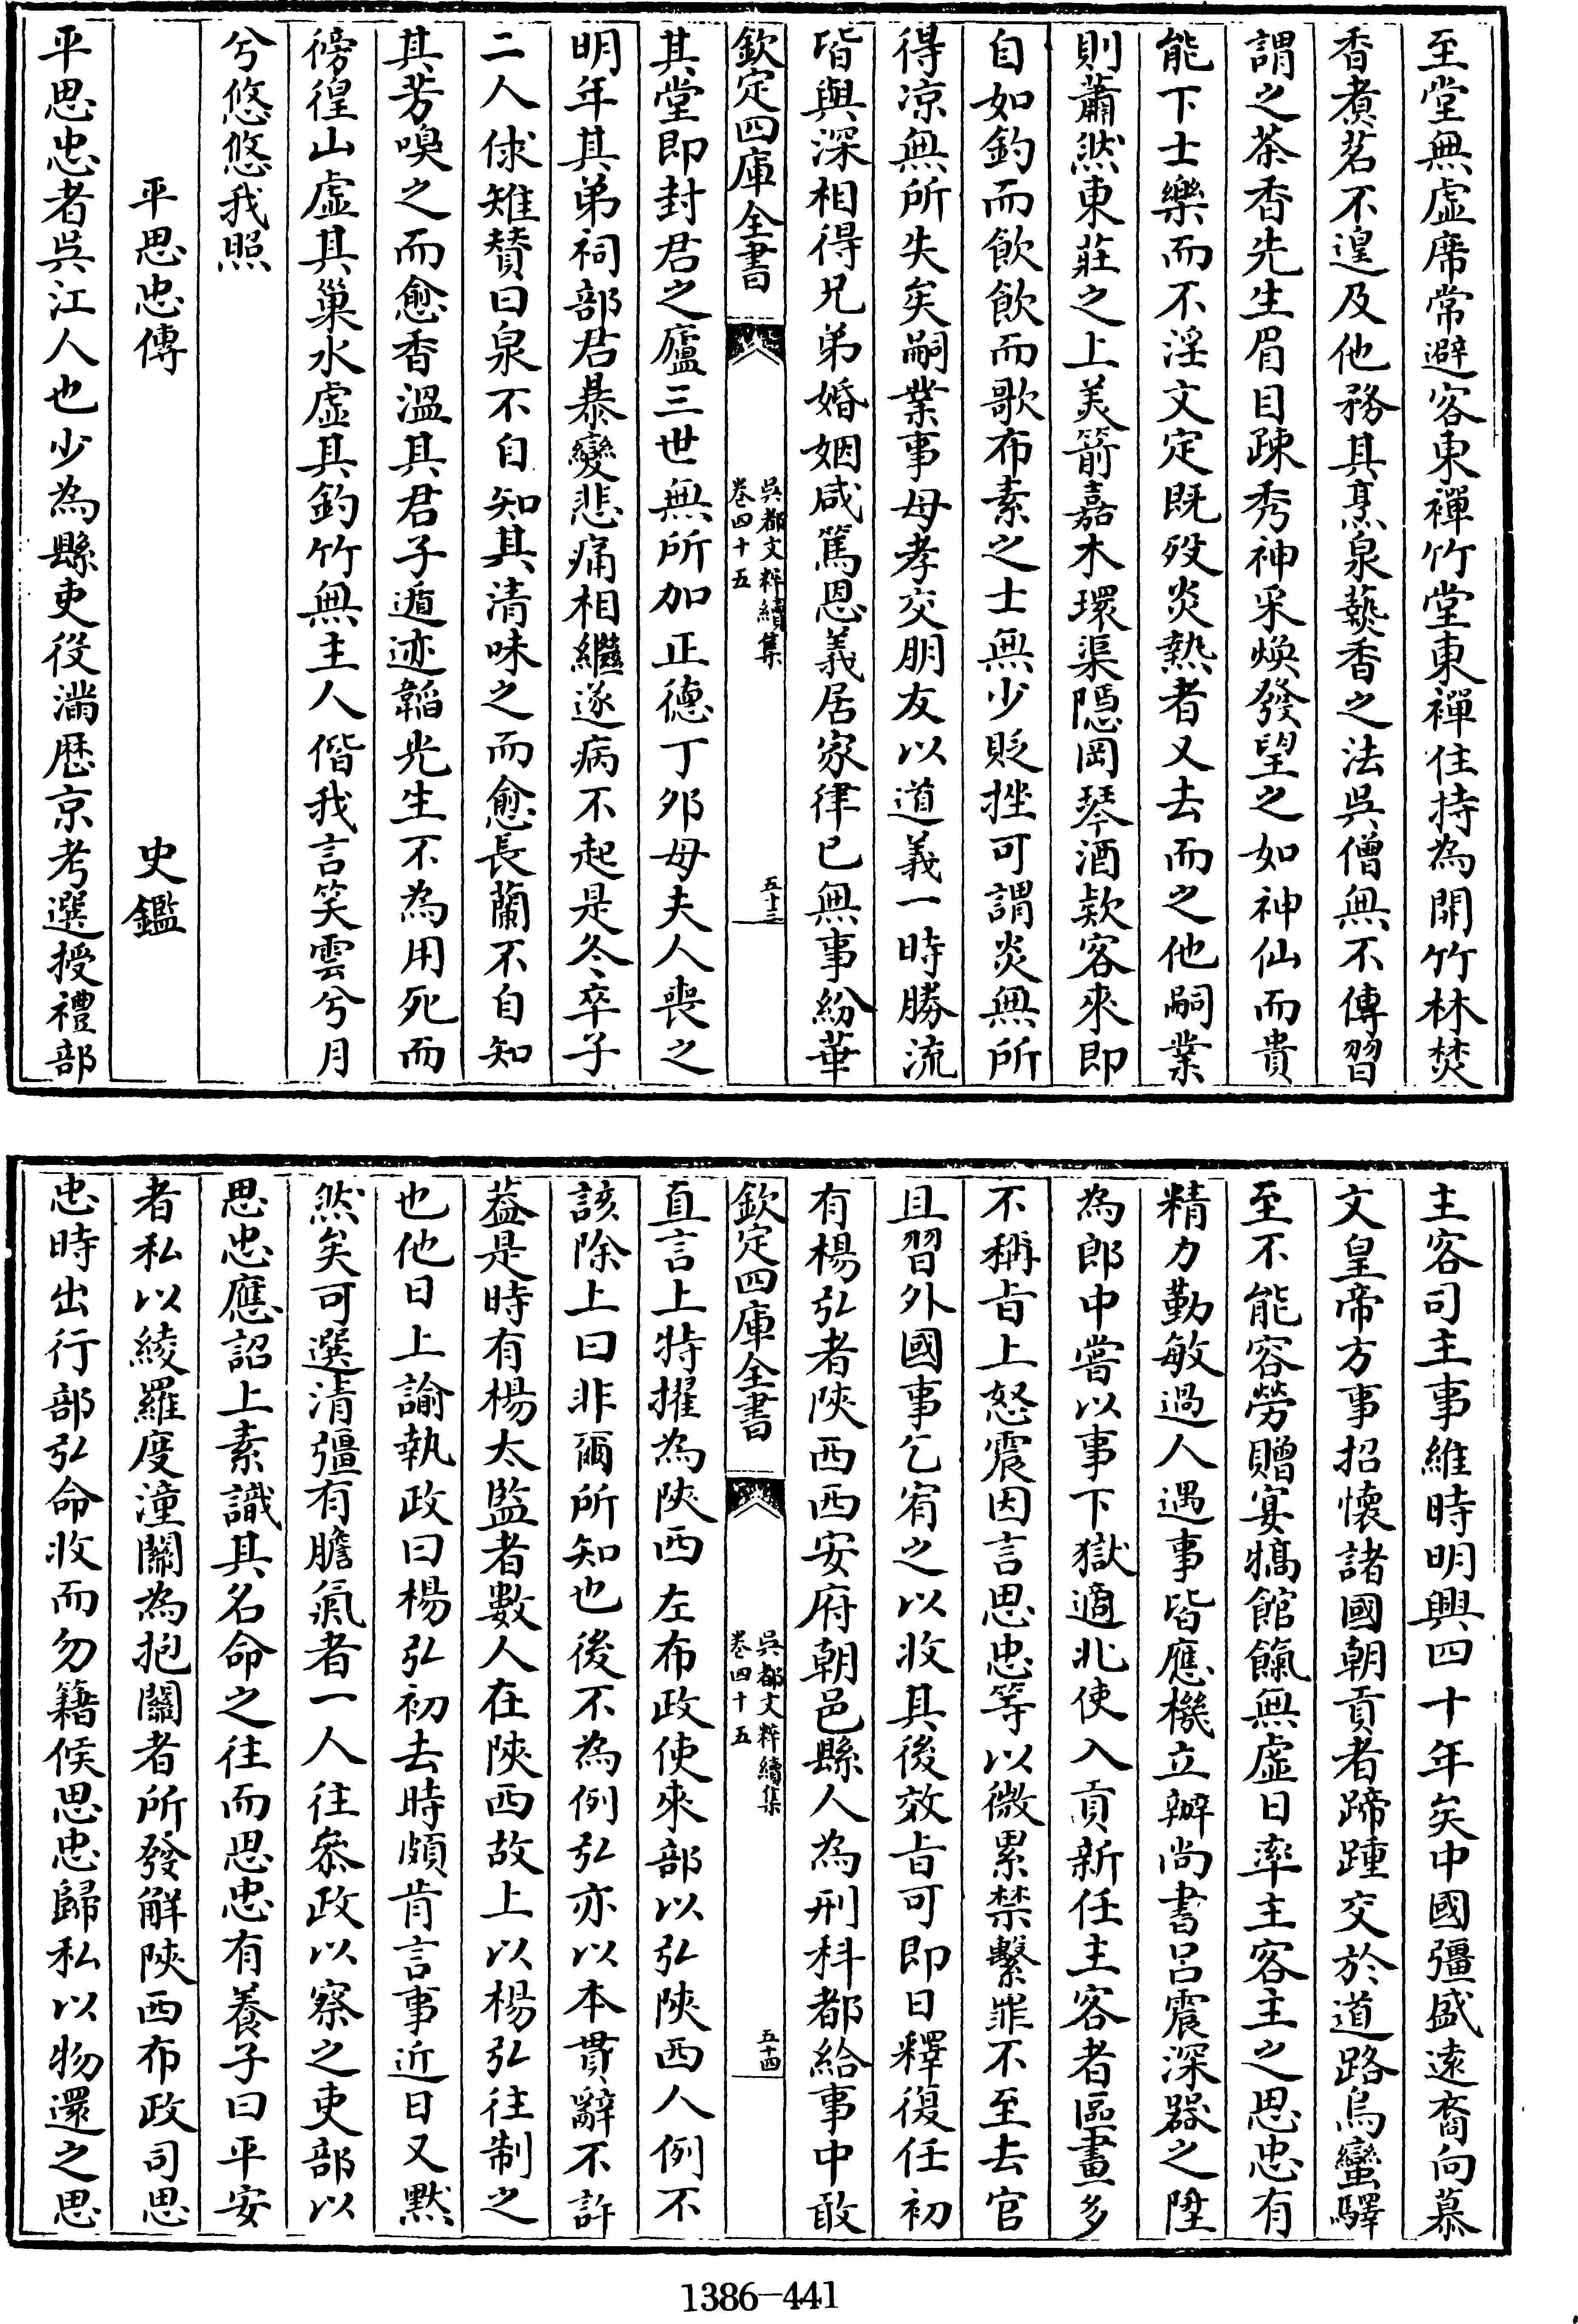 至堂無虛席常避客東禪竹堂東禪住持為開竹林焚
香煮茗不遑及他務其烹泉爇香之法吳僧無不傳習
謂之茶香先生眉目疎秀神采煥發望之如神仙而貴
能下士樂而不淫文定既歿炎熱者又去而之他嗣業
則蕭然東莊之上美箭嘉木環渠隱岡琴酒欵客來即
自如釣而飲飲而歌布素之士無少貶挫可謂炎無所
得凉無所失矣嗣業事母孝交朋友以道義一時勝流
皆與深相得兄弟婚姻咸篤恩義居家律已無事紛華
欽定四庫全書
吳都文粹續集
卷四十五
五十三
其堂即封君之廬三世無所加正德丁夘母夫人喪之
明年其弟祠部君暴變悲痛相繼遂病不起是冬卒子
二人俅雉賛曰泉不自知其清味之而愈長蘭不自知
其芳嗅之而愈香溫其君子遁迹韜光生不為用死而
徬徨山虛其巢水虛其釣竹無主人偕我言笑雲兮月
兮悠悠我照
平思忠傳
史鑑
平思忠者吳江人也少為縣吏役滿歷京考選授禮部
主客司主事維時明興四十年矣中國彊盛遠裔向慕
文皇帝方事招懷諸國朝貢者蹄踵交於道路烏蠻驛
至不能容勞贈宴犒館餼無虛日率主客主之思忠有
精力勤敏過人遇事皆應機立辦尚書呂震深器之陞
為郎中嘗以事下獄適北使入貢新任主客者區畫多
不稱旨上怒震因言思忠等以微累禁繫罪不至去官
且習外國事乞宥之以收其後效旨可即日釋復任初
有楊弘者陜西西安府朝邑縣人為刑科都給事中敢
欽定四庫全書
吳都文粹續集
卷四十五
五十四
直言上特擢為陜西左布政使來部以弘陜西人例不
該除上曰非爾所知也後不為例弘亦以本貫辭不許
葢是時有楊太監者數人在陜西故上以楊弘往制之
也他日上諭執政曰楊弘初去時頗肯言事近日又黙
然矣可選清彊有膽氣者一人往叅政以察之吏部以
思忠應詔上素識其名命之往而思忠有養子曰平安
者私以綾羅度潼關為抱關者所發解陜西布政司思
忠時出行部弘命收而勿籍候思忠歸私以物還之思
1386-441